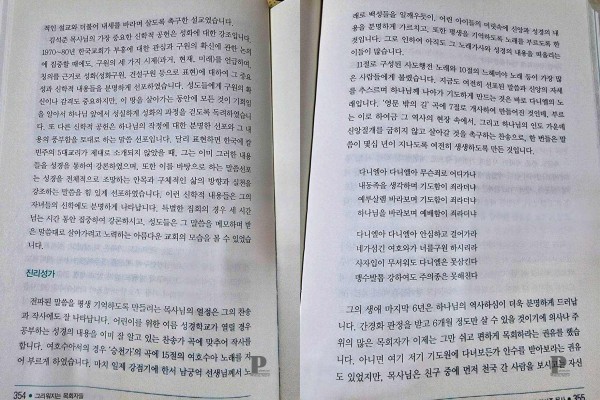 적인 설교와 더불어 내세를 바라며 살도록 촉구한 설교였습니다.
김석준 목사님의 가장 중요한 신학적 공헌은 성화에 대한 강조입니다.
1970~80년 한국교회가 부흥에 대한 관심과 구원의 확신에 관한 논의
에 집중할 때에도, 구원의 세 가지 시제(과거, 현재, 미래)를 언급하며,
칭의를 근거로 성화(성화구원, 건설구원 등으로 표현)에 대하여 그 중요
성과 신학적 내용들을 분명하게 선포하였습니다. 성도들에게 구원의 확
신이나 감격도 중요하지만, 이 땅을 살아가는 동안에 모든 것이 기회임
을 알아서 하나님 앞에서 성실하게 성화의 과정을 걷도록 독려하였습니
다. 또 다른 신학적 공헌은 하나님의 작정에 대한 분명한 선포와 그 내
용의 풍부함을 토대로 하는 말씀 선포입니다. 달리 표현하면 한국에 칼
빈주의 5대교리가 제대로 소개되지 않았을 때, 그는 이미 그러한 내용
들을 성경을 통하여 강론하였으며, 또한 이를 바탕으로 하는 말씀선포
는 성경을 전체적으로 조망하는 안목과 구체적인 삶의 방향과 실천을
강조하는 말씀을 힘 있게 선포하였습니다. 이런 신학적 내용들은 그의
자녀들의 신학에도 분명하게 나타납니다. 특별한 집회의 경우 세 시간
넘는 시간 동안 집중하여 강론하시고, 성도들은 그 말씀을 메모하며 받
은 말씀대로 살아가려고 노력하는 아름다운 교회의 모습을 볼 수 있었습
니다.
진리성가
전파된 말씀을 평생 기억하도록 만들려는 목사님의 열정은 그의 찬송
과 작사에도 잘 나타납니다. 어린이를 위한 여름 성경학교가 열릴 경우
공부하는 성경의 내용을 이미 잘 알고 있는 찬송가 곡에 맞추어 작사를
합니다. 여호수아서의 경우 ‘승전가’의 곡에 15절의 여호수아 노래를 지
어 부르게 하였습니다. 마치 일제 강점기에 한서 남궁억 선생님께서 노
354 그리워지는 목회자들
래로 백성들을 일깨우듯이, 어린 아이들의 머릿속에 신앙과 성경의 내
용을 분명하게 가르치고, 또한 평생을 기억하도록 노래를 부르도록 한
것입니다. 그로 인하여 아직도 그 노래가사와 성경의 내용을 떠올리는
이들이 많습니다.
11절로 구성된 사도행전 노래와 10절의 느헤미야 노래 등이 가장 많
은 사람들에게 불렸습니다. 지금도 여전히 선포된 말씀과 신앙의 자세
를 추스르며 하나님께 나아가 기도하게 만드는 것은 바로 다니엘의 노
래입니다. ‘영문 밖의 길’ 곡에 7절로 개사하여 만들어진 것인데, 부르
는 이로 하여금 그 역사의 현장 속에서, 그리고 하나님의 인도 가운데
신앙절개를 굽히지 않고 살아갈 것을 촉구하는 찬송으로, 한 번들은 말
씀이 몇십 년이 지나도록 여전히 생생하도록 만든 것입니다.
다니엘아 다니엘아 무슨죄로 어디가나
내동족을 생각하여 기도함이 죄라더냐
예루살렘 바라보며 기도함이 죄라더냐
하나님을 바라보며 예배함이 죄라더냐
다니엘아 다니엘아 안심하고 걸어가라
네가섬긴 여호와가 너를구원 하시리라
사자입이 무서워도 다니엘은 못삼킨다
맹수발톱 강하여도 주의종은 못해친다
그의 생애 마지막 6년은 하나님의 역사하심이 더욱 분명하게 드러납
니다. 간경화 판정을 받고 6개월 정도만 살 수 있을 것이기에 의사나 주
위의 많은 목회자가 이제는 그만 쉬고 편하게 목회하라는 권유를 했습
니다. 아니면 여기 저기 기도원에 다녀보든가 안수를 받아보라는 권유
도 있었지만, 목사님은 친구 중에 먼저 천국 간 사람을 보시고는 자신
355